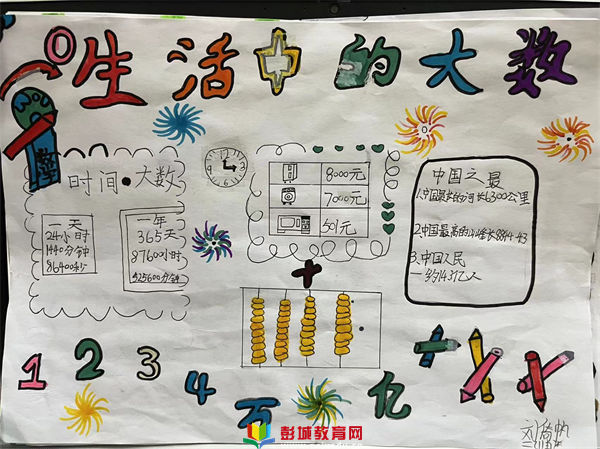 生活中的大数
数学
时间·大数
一天
24小时
1440分钟
86400秒
一年
365天
8760小时
525600分钟
8000元
7000元
501元
中国之最
1.中国最长的河长6300公里
2.中国最高的山峰长8844.43
3.中国人民
一约14.3亿人
1 2 3 4 万 亿
彭城教育网